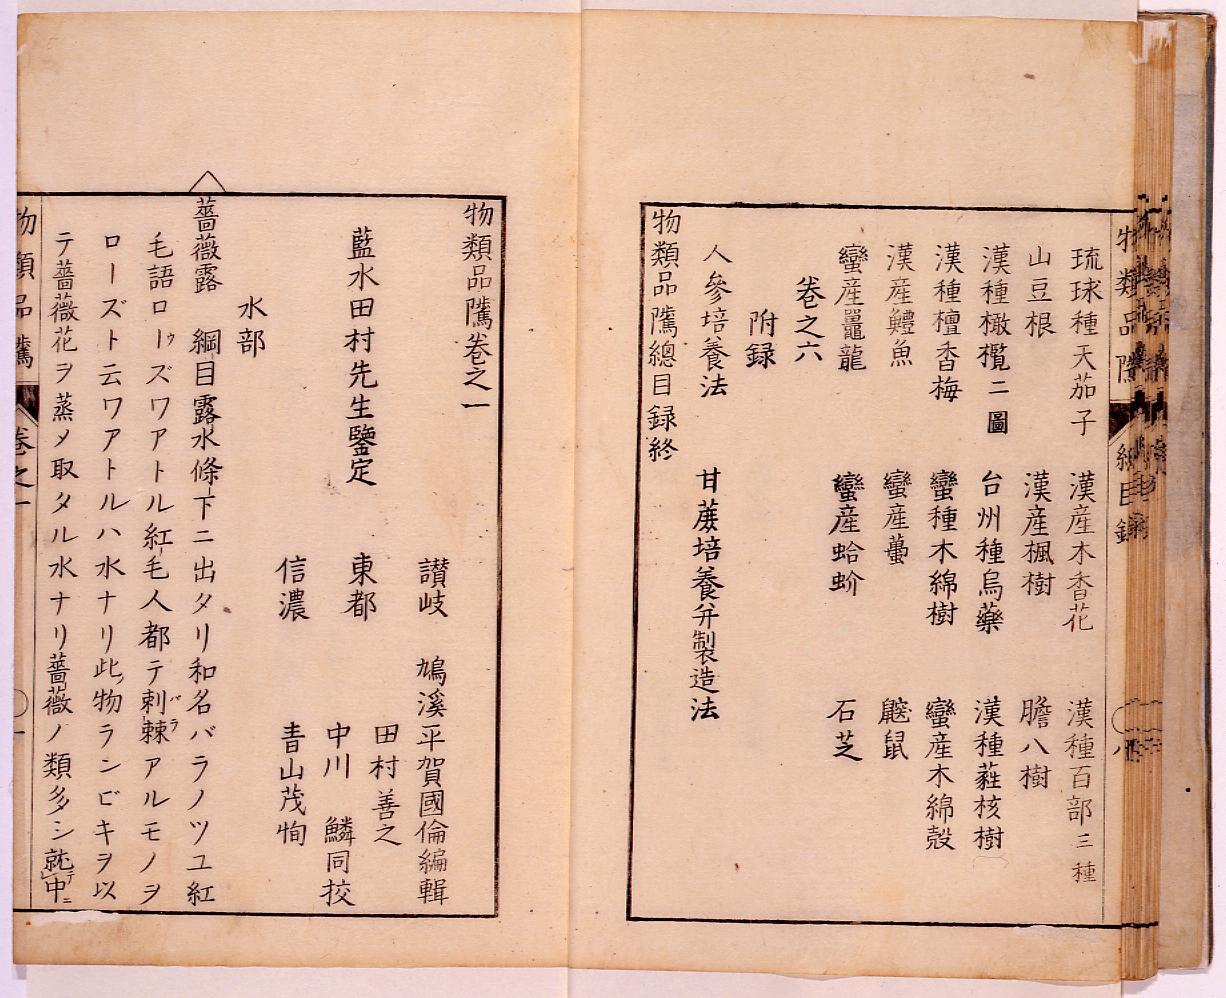 琉球種天茄子 漢産木香花 漢種百部三種
山豆根 漢産楓樹 膽八樹
漢種橄欖二圖 台州種烏藥 漢種蕤核樹
漢種檀香梅 蠻種木綿樹 蠻産木綿殼
漢産鱧魚 蠻産蠆 鼴鼠
蠻産鼉龍 蠻産蛤蚧 石芝
卷之六
附録
人參培養法 甘蔗培養幷製造法
物類品隲總目録終
物類品隲卷之一
讃岐 鳩溪平賀國倫編輯
田村善之
藍水田村先生鑒定 東都
中川 鱗同校
信濃 青山茂恂
水部
薔薇露 綱目露水條下ニ出タリ和名バラノツユ紅
毛語ローズワアトル紅毛人都テ刺棘アルモノヲ
ローズト云ワアトルハ水ナリ此物ランビキヲ以
テ薔薇花ヲ蒸メ取タル水ナリ薔薇ノ類多シ就中
物類品隲 卷之一